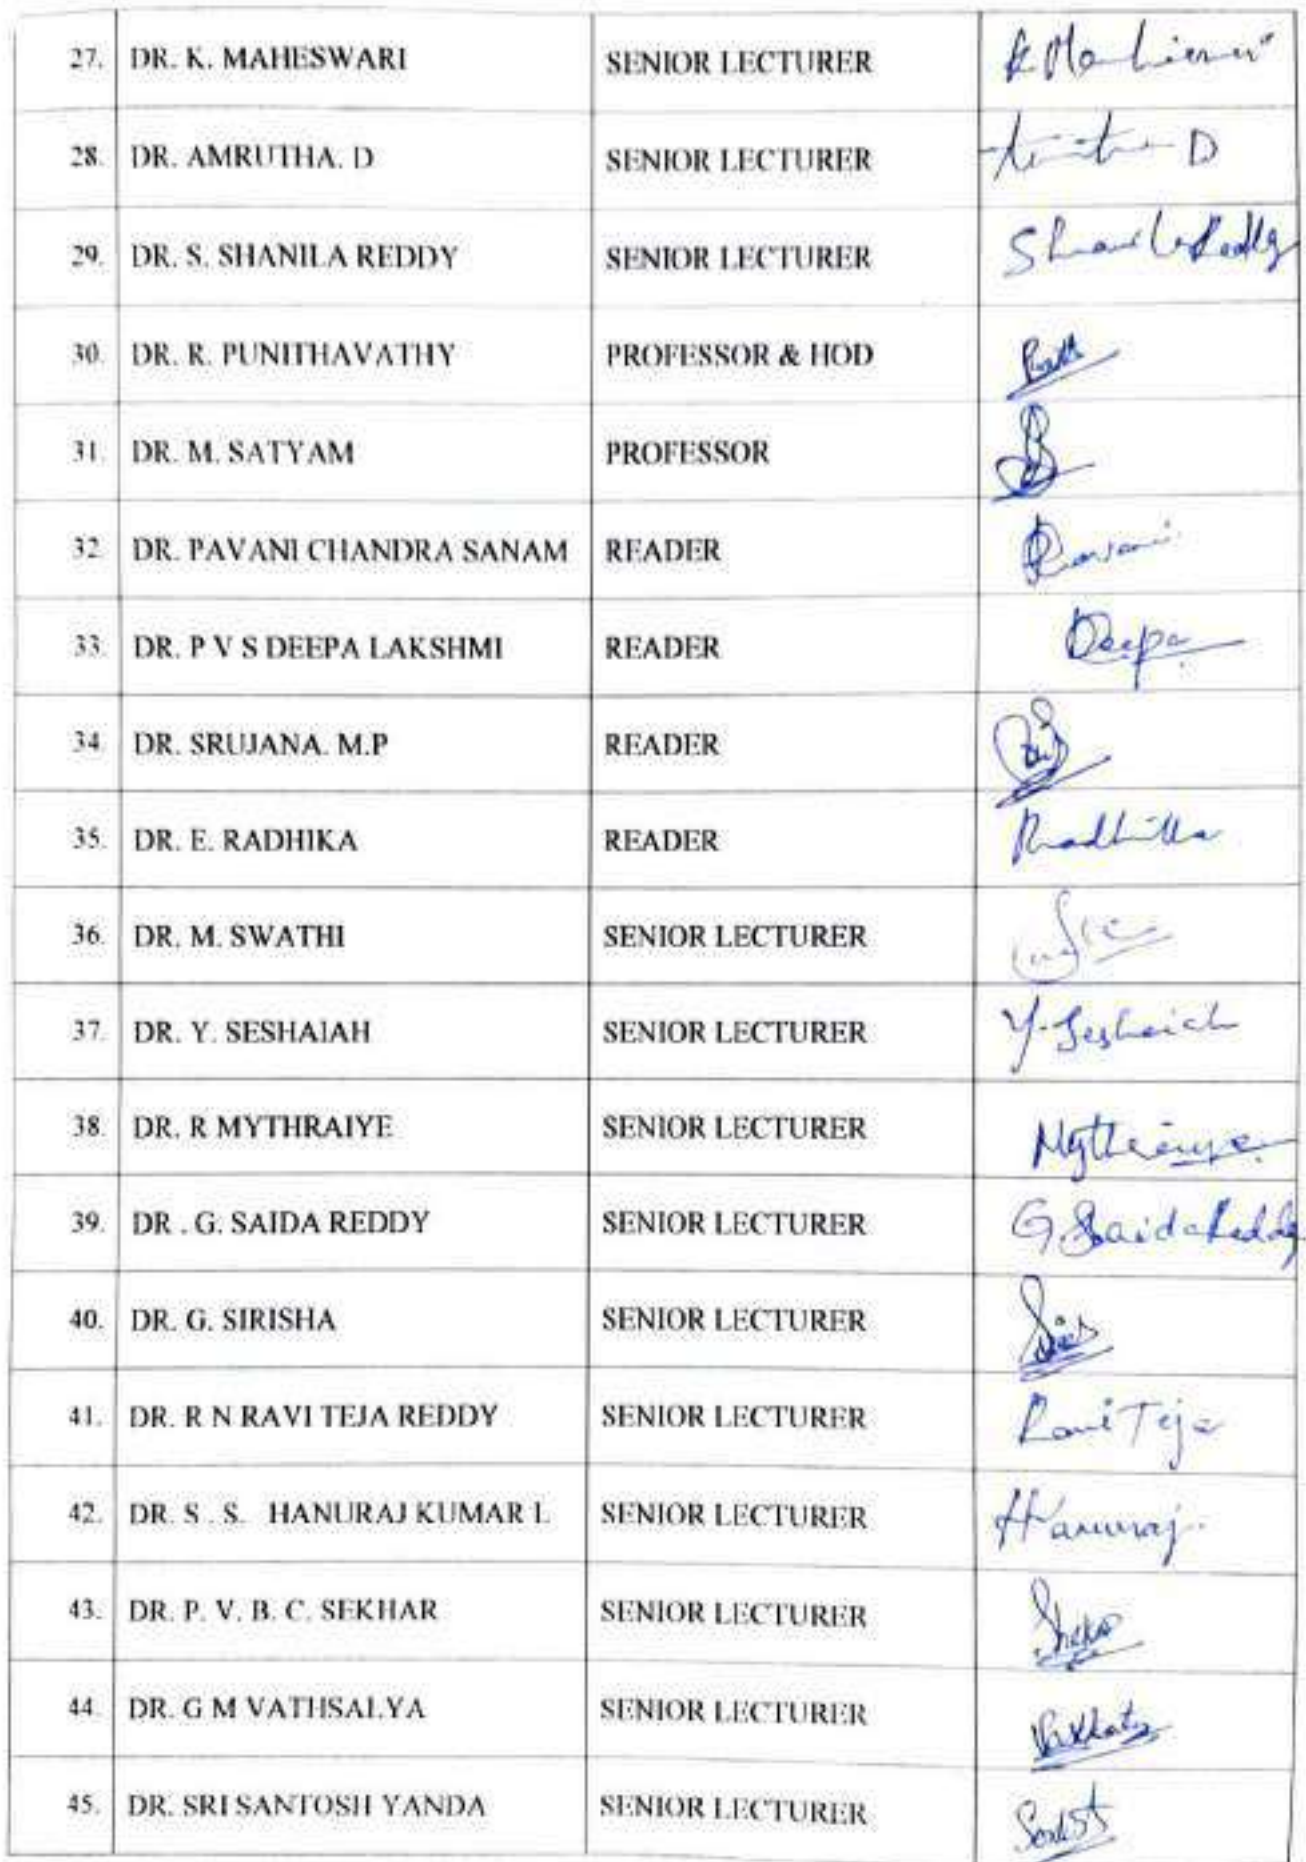 27. DR. K. MAHESWARI SENIOR LECTURER K Maheswari
28. DR. AMRUTHA. D SENIOR LECTURER D
29. DR. S. SHANILA REDDY SENIOR LECTURER Shanila Reddy
30. DR. R. PUNITHAVATHY PROFESSOR & HOD
31. DR. M. SATYAM PROFESSOR
32. DR. PAVANI CHANDRA SANAM READER Pavani
33. DR. P V S DEEPA LAKSHMI READER Deepa
34. DR. SRUJANA. M.P READER
35. DR. E. RADHIKA READER Radhika
36. DR. M. SWATHI SENIOR LECTURER
37. DR. Y. SESHAIAH SENIOR LECTURER Y. Seshaiah
38. DR. R MYTHRAIYE SENIOR LECTURER Mythraiye
39. DR . G. SAIDA REDDY SENIOR LECTURER G Saida Reddy
40. DR. G. SIRISHA SENIOR LECTURER
41. DR. R N RAVI TEJA REDDY SENIOR LECTURER Ravi Teja
42. DR. S . S. HANURAJ KUMAR L SENIOR LECTURER Hanuraj
43. DR. P. V. B. C. SEKHAR SENIOR LECTURER
44. DR. G M VATHSALYA SENIOR LECTURER
45. DR. SRI SANTOSH YANDA SENIOR LECTURER